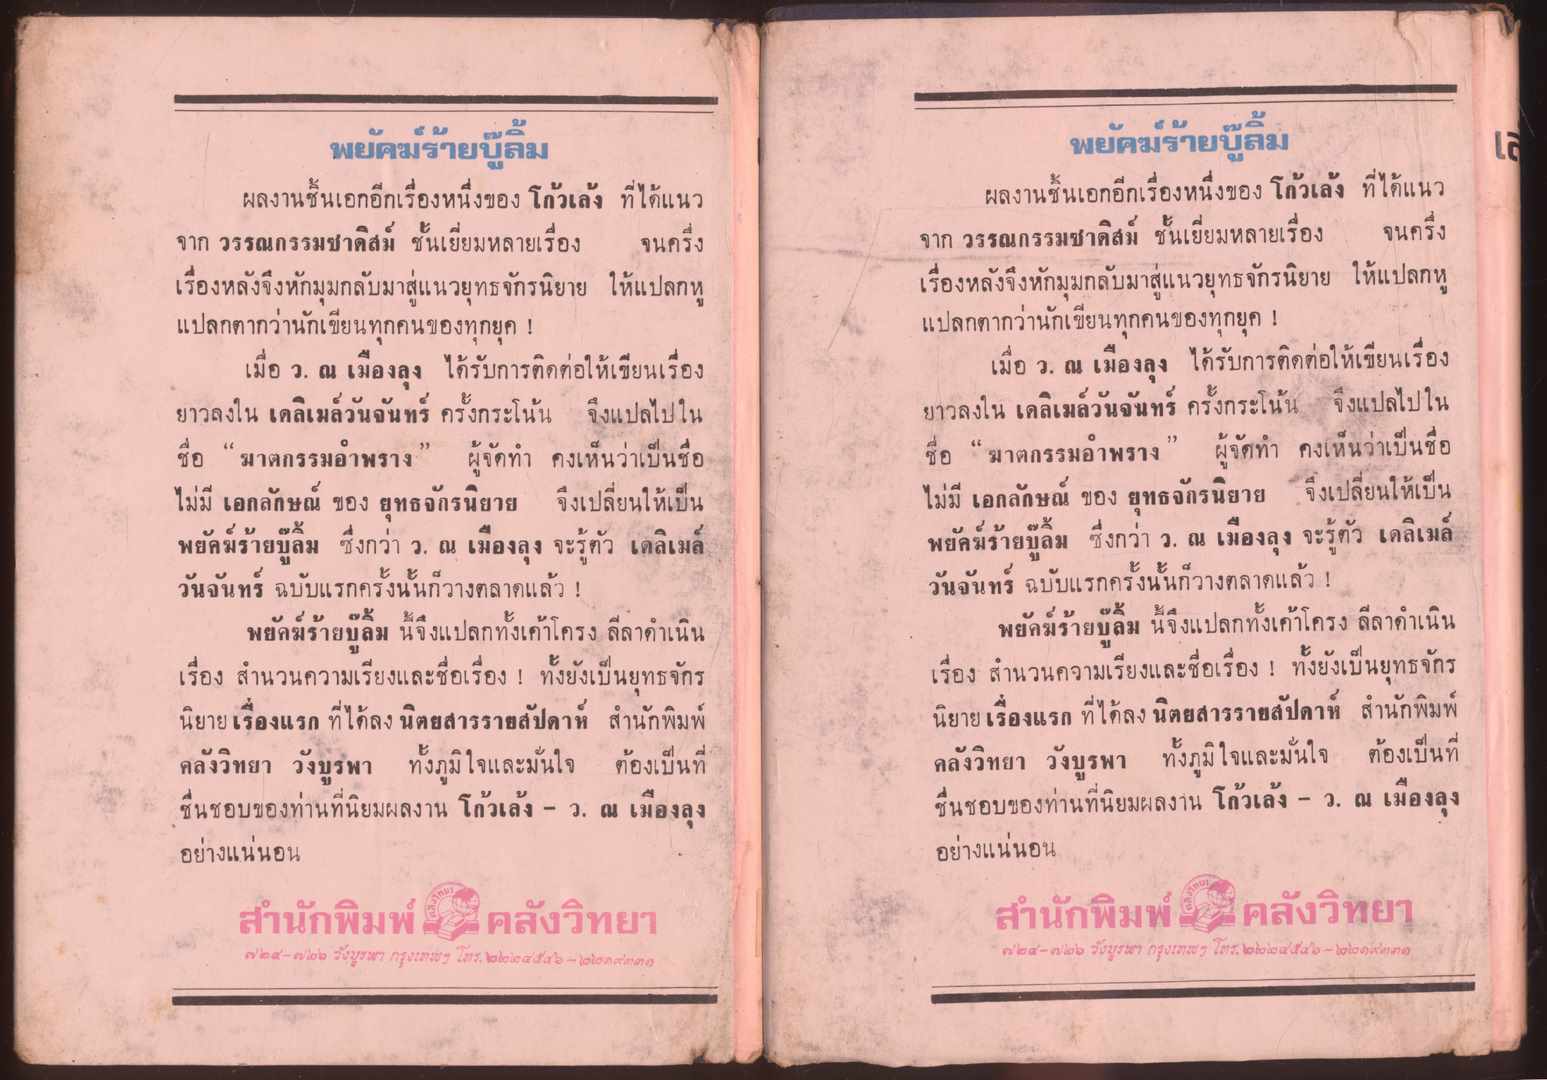 พยัคฆ์ร้ายบู๊ลิ้ม
ผลงานชิ้นเอกอีกเรื่องหนึ่งของ โก้วเล้ง ที่ได้แนว
จาก วรรณกรรมซาดิสม์ ชั้นเยี่ยมหลายเรื่อง จนครึ่ง
เรื่องหลังจึงหักมุมกลับมาสู่แนวยุทธจักรนิยาย ให้แปลกหู
แปลกตากว่านักเขียนทุกคนของทุกยุค !
เมื่อ ว. ณ เมืองลุง ได้รับการติดต่อให้เขียนเรื่อง
ยาวลงใน เดลิเมล์วันจันทร์ ครั้งกระโน้น จึงแปลไปใน
ชื่อ “ ฆาตกรรมอำพราง ” ผู้จัดทำ คงเห็นว่าเป็นชื่อ
ไม่มี เอกลักษณ์ ของ ยุทธจักรนิยาย จึงเปลี่ยนให้เป็น
พยัคฆ์ร้ายบู๊ลิ้ม ซึ่งกว่า ว. ณ เมืองลุง จะรู้ตัว เดลิเมล์
วันจันทร์ ฉบับแรกครั้งนั้นก็วางตลาดแล้ว !
พยัคฆ์ร้ายบู๊ลิ้ม นี้จึงแปลกทั้งเค้าโครง ลีลาดำเนิน
เรื่อง สำนวนความเรียงและชื่อเรื่อง ! ทั้งยังเป็นยุทธจักร
นิยาย เรื่องแรก ที่ได้ลง นิตยสารรายสัปดาห์ สำนักพิมพ์
คลังวิทยา วังบูรพา ทั้งภูมิใจและมั่นใจ ต้องเป็นที่
ชื่นชอบของท่านที่นิยมผลงาน โก้วเล้ง – ว. ณ เมืองลุง
อย่างแน่นอน
สำนักพิมพ์ คลังวิทยา คลังวิทยา
๗๒๔-๗๒๖ วังบูรพา กรุงเทพฯ โทร. ๒๒๒๔๕๔๖-๒๒๑๙๓๓๑
พยัคฆ์ร้ายบู๊ลิ้ม
ผลงานชิ้นเอกอีกเรื่องหนึ่งของ โก้วเล้ง ที่ได้แนว
จาก วรรณกรรมซาดิสม์ ชั้นเยี่ยมหลายเรื่อง จนครึ่ง
เรื่องหลังจึงหักมุมกลับมาสู่แนวยุทธจักรนิยาย ให้แปลกหู
แปลกตากว่านักเขียนทุกคนของทุกยุค !
เมื่อ ว. ณ เมืองลุง ได้รับการติดต่อให้เขียนเรื่อง
ยาวลงใน เดลิเมล์วันจันทร์ ครั้งกระโน้น จึงแปลไปใน
ชื่อ “ ฆาตกรรมอำพราง ” ผู้จัดทำ คงเห็นว่าเป็นชื่อ
ไม่มี เอกลักษณ์ ของ ยุทธจักรนิยาย จึงเปลี่ยนให้เป็น
พยัคฆ์ร้ายบู๊ลิ้ม ซึ่งกว่า ว. ณ เมืองลุง จะรู้ตัว เดลิเมล์
วันจันทร์ ฉบับแรกครั้งนั้นก็วางตลาดแล้ว !
พยัคฆ์ร้ายบู๊ลิ้ม นี้จึงแปลกทั้งเค้าโครง ลีลาดำเนิน
เรื่อง สำนวนความเรียงและชื่อเรื่อง ! ทั้งยังเป็นยุทธจักร
นิยาย เรื่องแรก ที่ได้ลง นิตยสารรายสัปดาห์ สำนักพิมพ์
คลังวิทยา วังบูรพา ทั้งภูมิใจและมั่นใจ ต้องเป็นที่
ชื่นชอบของท่านที่นิยมผลงาน โก้วเล้ง – ว. ณ เมืองลุง
อย่างแน่นอน
สำนักพิมพ์ คลังวิทยา คลังวิทยา
๗๒๔-๗๒๖ วังบูรพา กรุงเทพฯ โทร. ๒๒๒๔๕๔๖-๒๒๑๙๓๓๑